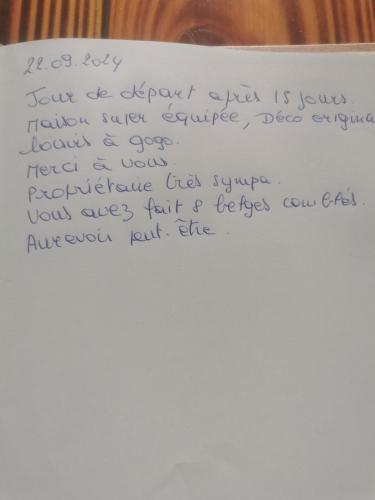 22.09.2024
Jour de départ après 15 jours.
Maison super équipée, Déco origina
à gogo.
Merci à vous.
Propriétaire très sympa.
Vous avez fait 8 belges comblés.
Aurevoir peut-être.